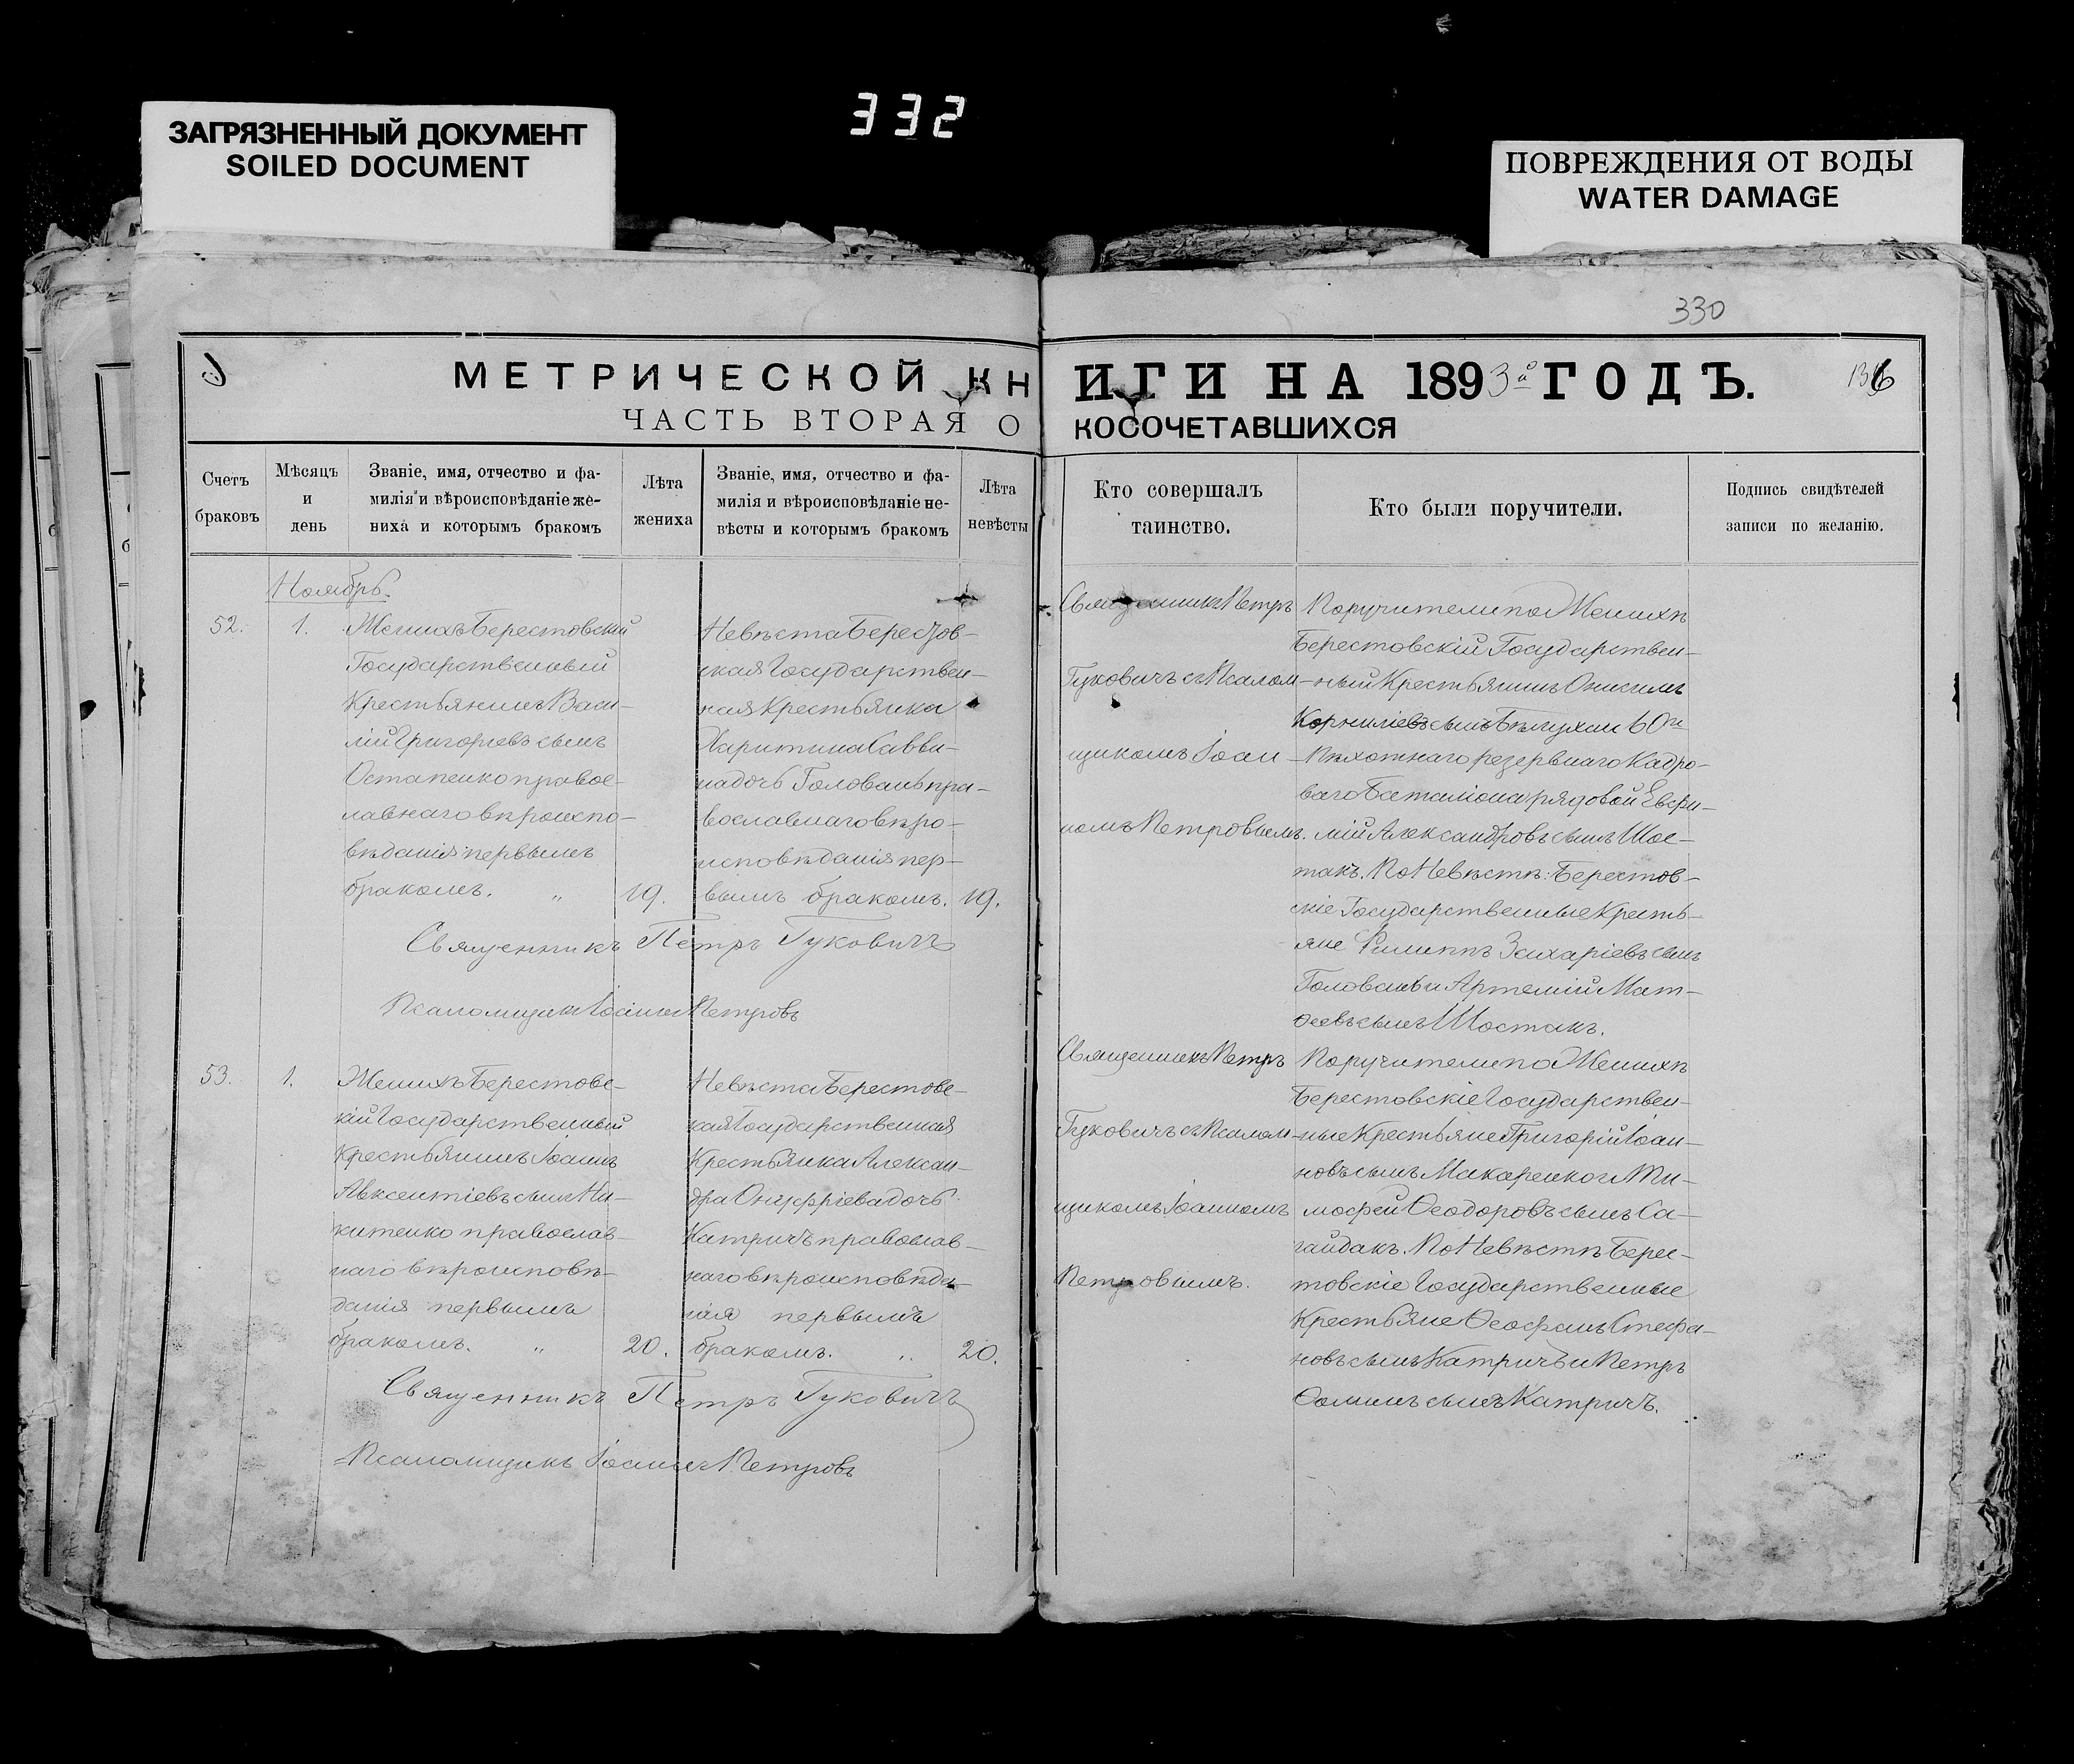 332
ЗАГРЯЗНЕННЫЙ ДОКУМЕНТ
SOILED DOCUMENT
ПОВРЕЖДЕНИЯ ОТ ВОДЫ
WATER DAMAGE
330
МЕТРИЧЕСКОЙ КНИГИ НА 1893й ГОДЪ.
136
ЧАСТЬ ВТОРАЯ О
КОСОЧЕТАВШИХСЯ
Счетъ
браковъ
Мѣсяцъ
и
день
Званіе, имя, отчество и фа-
милія и вѣроисповѣданіе же-
ниха и которымъ бракомъ
Лѣта
жениха
Званіе, имя, отчество и фа-
милія и вѣроисповѣданіе не-
вѣсты и которымъ бракомъ
Лѣта
невѣсты
Кто совершалъ
таинство.
Кто были поручители.
Подпись свидѣтелей
записи по желанію.
Ноябрь.
52.
1.
Женихъ Берестовскій
Государственный
Крестьянинъ Васи-
лій Григоріевъ сынъ
Остапенко правос-
лавнаго вѣроиспо-
вѣданія первымъ
бракомъ. „
19.
Невѣста Берестов-
ская Государствен-
ная Крестьянка
Харитина Савви-
на дочь Головань пра-
вославнаго вѣро-
исповѣданія пер-
вымъ бракомъ.
19.
Священникъ Петръ
Гуковичъ съ Псалом-
щикомъ Іоан-
номъ Петровымъ.
Поручители по Женихѣ
Берестовскій Государствен-
ный Крестьянинъ Онисимъ
Корниліевъ сынъ Бѣлухан 60й
Пѣхотнаго резервнаго Кадро-
ваго Баталіона рядовой Евфи-
мій Александровъ сынъ Шос-
такъ. По Невѣстѣ: Берестов-
скіе Государственные Кресть-
яне Филиппъ Захаріевъ сынъ
Головань и Артемій Мат-
ѳеевъ сынъ Шостакъ.
Священникъ Петръ Гуковичъ
Псаломщикъ Іоаннъ Петровъ
53.
1.
Женихъ Берестовс-
кій Государственный
Крестьянинъ Іоаннъ
Авксентіевъ сынъ Ни-
китенко православ-
наго вѣроисповѣ-
данія первымъ
бракомъ. „
20.
Невѣста Берестовс-
кая Государственная
Крестьянка Алексан-
дра Онуфріева дочь
Катричъ православ-
наго вѣроисповѣда-
нія первымъ
бракомъ. „
20.
Священникъ Петръ
Гуковичъ съ Псалом-
щикомъ Іоанномъ
Петровымъ.
Поручители по Женихѣ
Берестовскіе Государствен-
ные Крестьяне Григорій Іоан-
новъ сынъ Макаренко и Ти-
мофей Ѳеодоровъ сынъ Са-
гайдакъ. По Невѣстѣ Берес-
товскіе Государственные
Крестьяне Ѳеофанъ Стефа-
новъ сынъ Катричъ и Петръ
Ѳоминъ сынъ Катричъ.
Священникъ Петръ Гуковичъ
Псаломщикъ Іоаннъ Петровъ